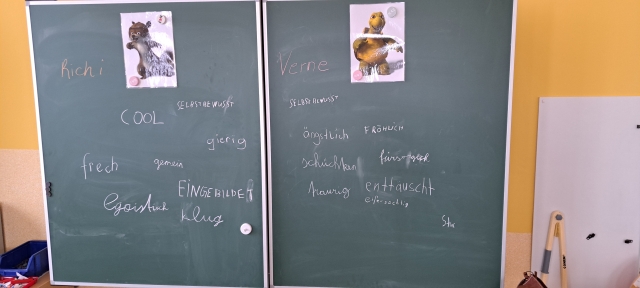 Richi
SELBSTBEWUSST
COOL
gierig
frech gemein
EINGEBILDET
egoistisch klug
Verne
SELBSTBEWUSST
ängstlich FRÖHLICH
schüchtern
traurig enttäuscht
eifersüchtig